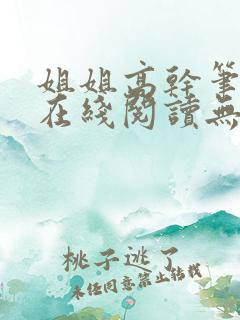 姐姐高幹筆
在綫閱讀無
桃子逃了
未经同意禁止转载